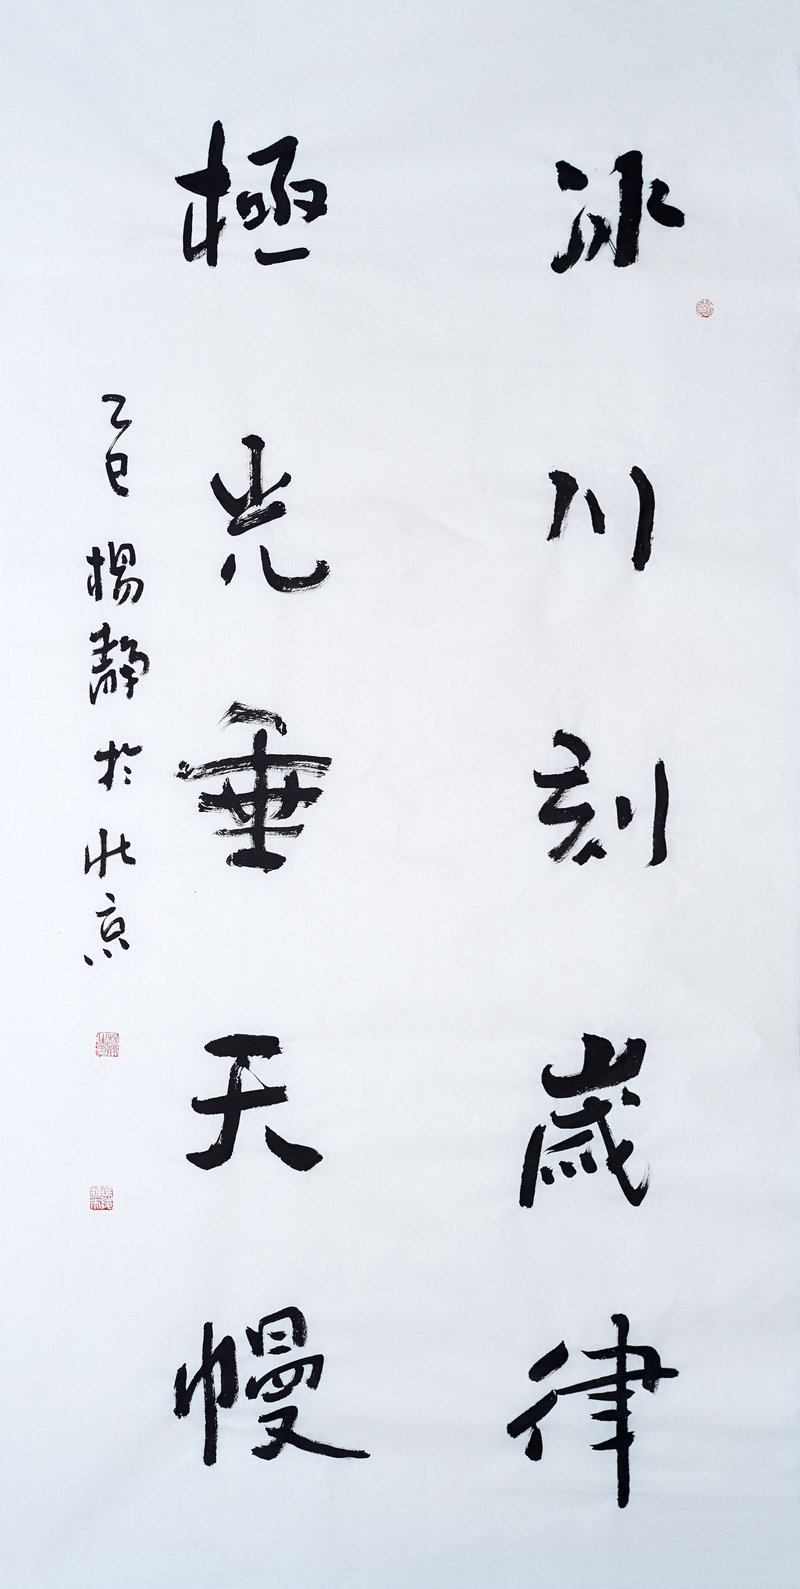 冰川刻歲律
極光垂天幔
乙巳楊靜於北京